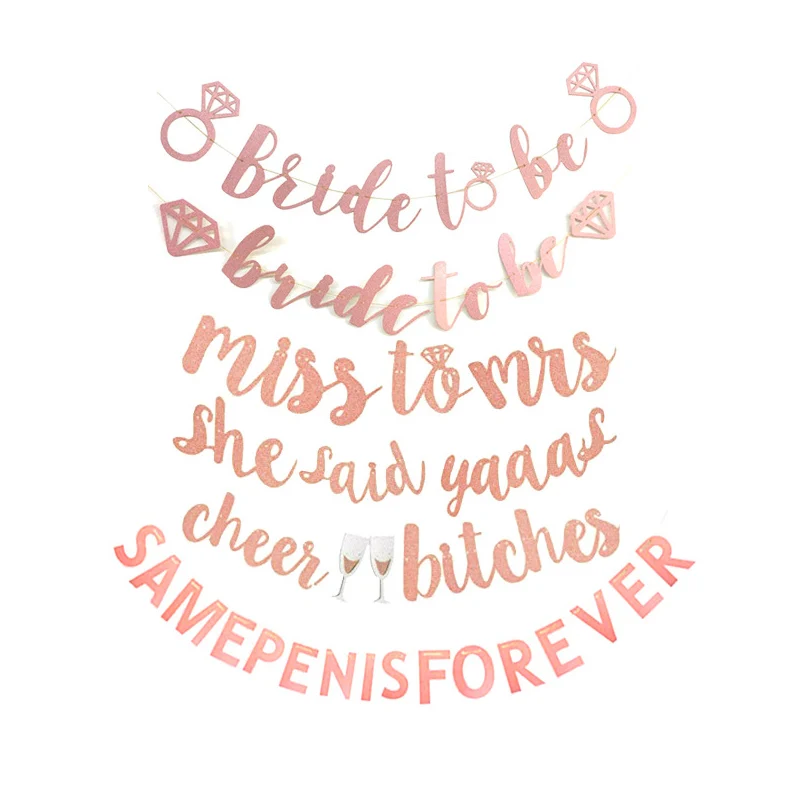 bride to be
bride to be
miss to mrs
she said yaaas
cheer bitches
SAMEPENISFOREVER